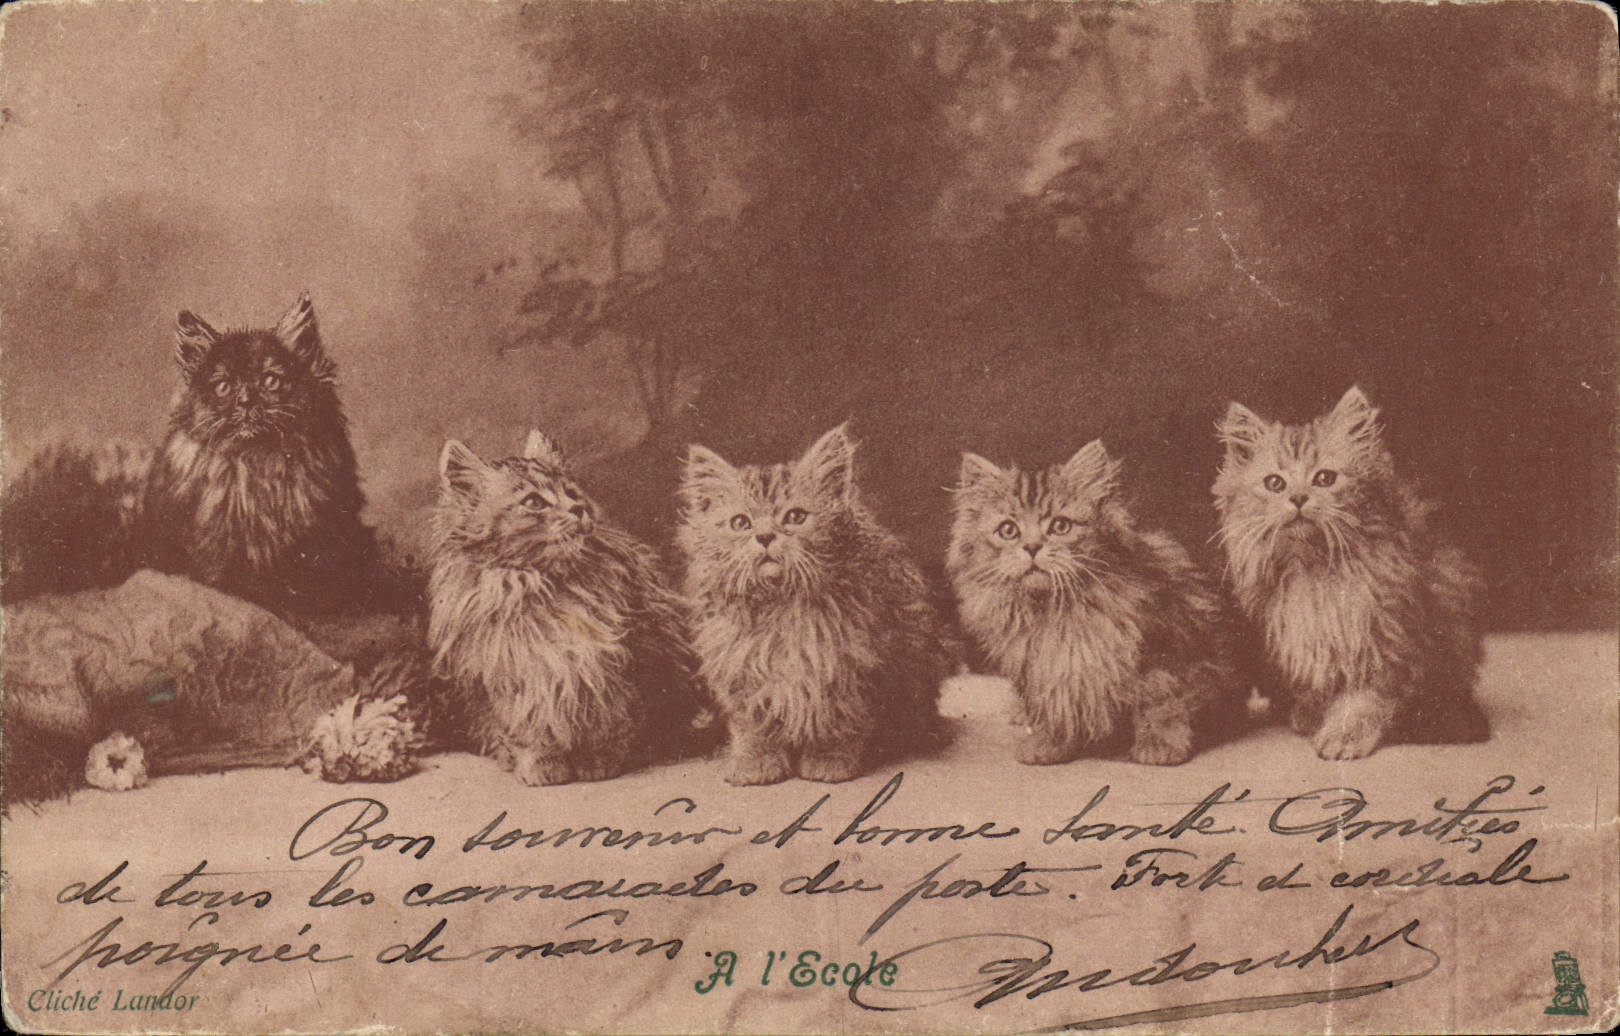 Bon souvenir et bonne santé. Amitiés
de tous les camarades du poste. Forte et cordiale
poignée de mains.
A l'Ecole
Cliché Landor